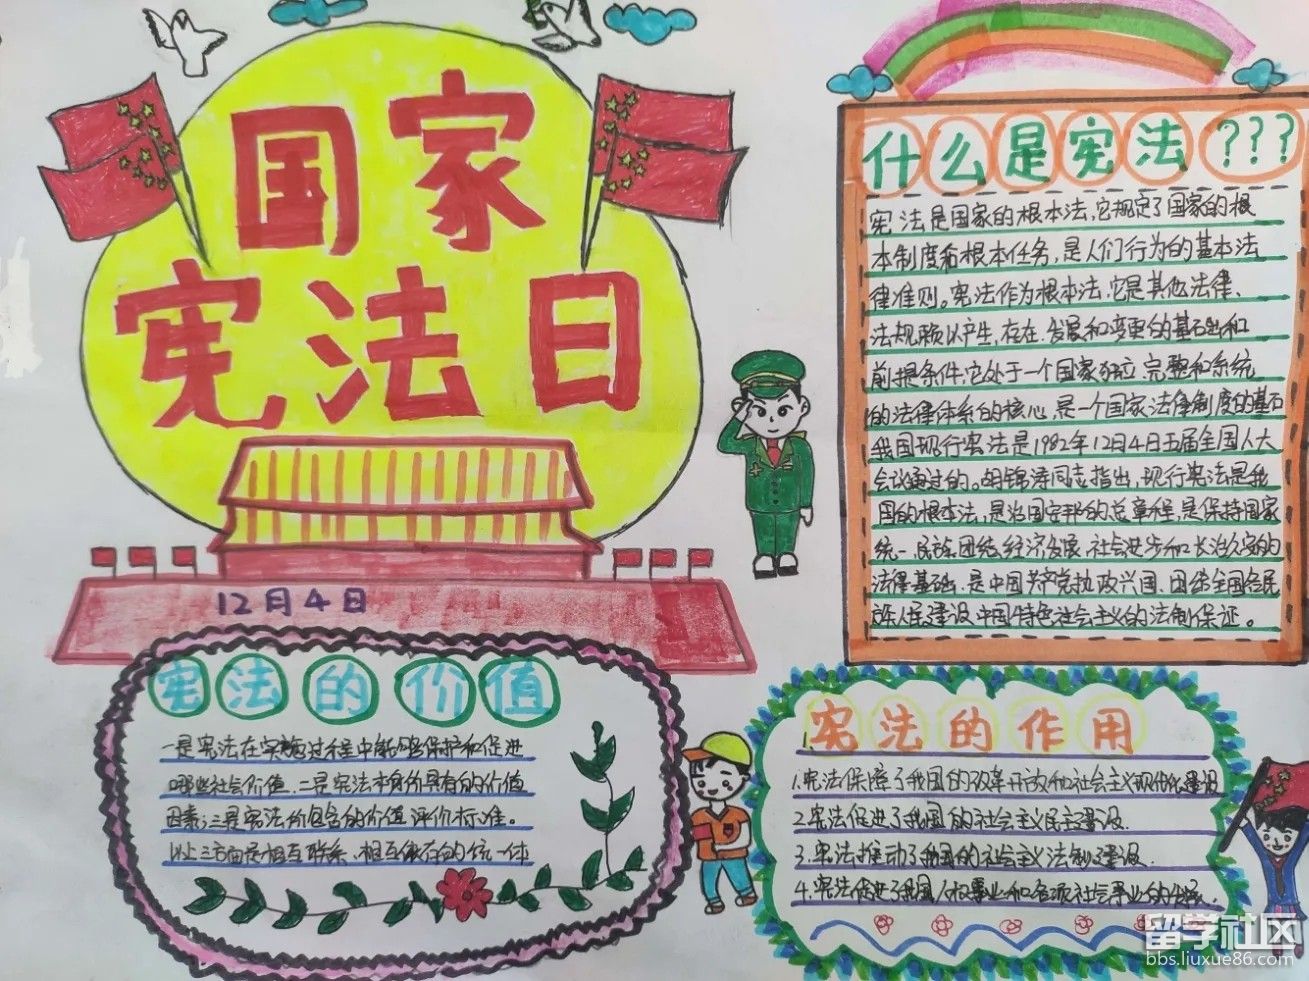 国家
宪法日
12月4日
什么是宪法???
宪法是国家的根本法,它规定了国家的根
本制度和根本任务,是人们行为的基本法
律准则。宪法作为根本法,它是其他法律、
法规赖以产生,存在.发展和变更的基础和
前提条件,它处于一个国家独立,完整和系统
的法律体系的核心,是一个国家法律制度的基石
我国现行宪法是1982年12月4日五届全国人大
会议通过的。胡锦涛同志指出,现行宪法是我
国的根本法,是治国安邦的总章程,是保持国家
统一.民族团结,经济发展.社会进步和长治久安的
法律基础.是中国共产党执政兴国.团结全国各民
族人民建设中国特色社会主义的法制保证。
宪法的价值
一是宪法在实施过程中能够保护和促进
哪些社会价值.二是宪法本身的具有的价值
因素;三是宪法价包含的价值评价标准。
以上三方面是相互联系.相互依存的统一体
宪法的作用
1.宪法保障了我国的改革开放和社会主义现代化建设
2.宪法促进了我国的社会主义民主建设.
3.宪法推动了我国的社会主义法制建设.
4.宪法促进了我国人权事业和各项社会事业的发展.
留学社区
bbs.liuxue86.com